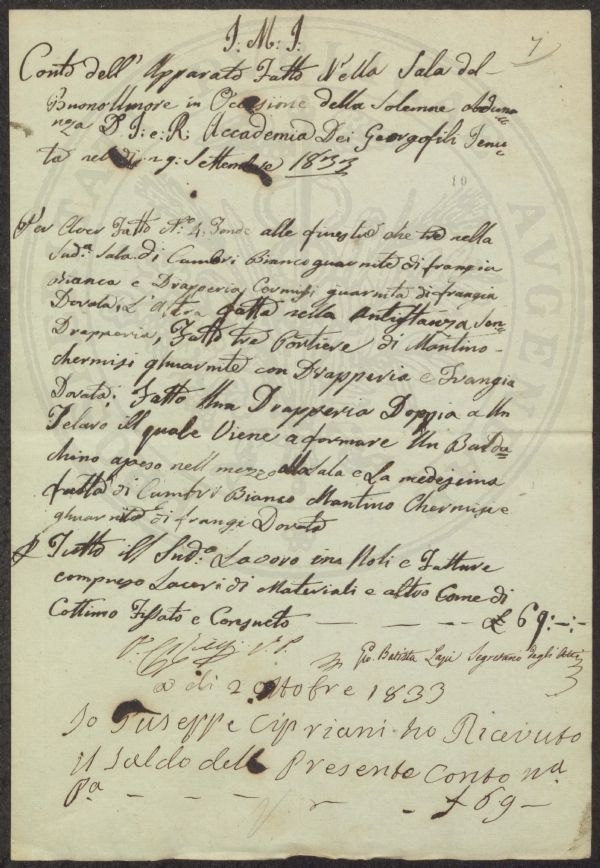 J: M: J:
7
Conto dell' Apparato Fatto Nella Sala del
Buonomore in Occasione della Solenne Aduna=
nza D. I: e: R: Accademia Dei Georgofili Tenu=
ta nel di 29: Settembre 1833
10
Per Aver Fatto N.o 4. Tende alle finestre che tre nella
Sud.a Sala di Cambri Bianco guarnite di frangia
Bianca e Drapperia Cormisi guarnita di frangia
Dorata, L'Altra fatta nella Antistanza Sen
Drapperia, Fatto tre Portiere di Mantino
chermisi ghuarnite con Drapperia e Frangia
Dorata; Fatto Una Drapperia Doppia a Un
Telaro ill quale Viene a formare Un Balda
chino apeso nell mezzo alla Sala e La medesima
fatta di Cambri Bianco Mantino Chermisi e
ghuarnito di frangi Dorata
P Tutto ill Sud.o Lavoro in Noli e Fatture
compreso Laceri di Materiali e altro Come di
Cottimo Fissato e Consueto — — — £ 69:-:-
Gio. Batista Segretario degli Atti
a di 2 ottobre 1833
Io Giuseppe Cipriani ho Ricevuto
il Saldo dell Presente Conto
£ 69 —